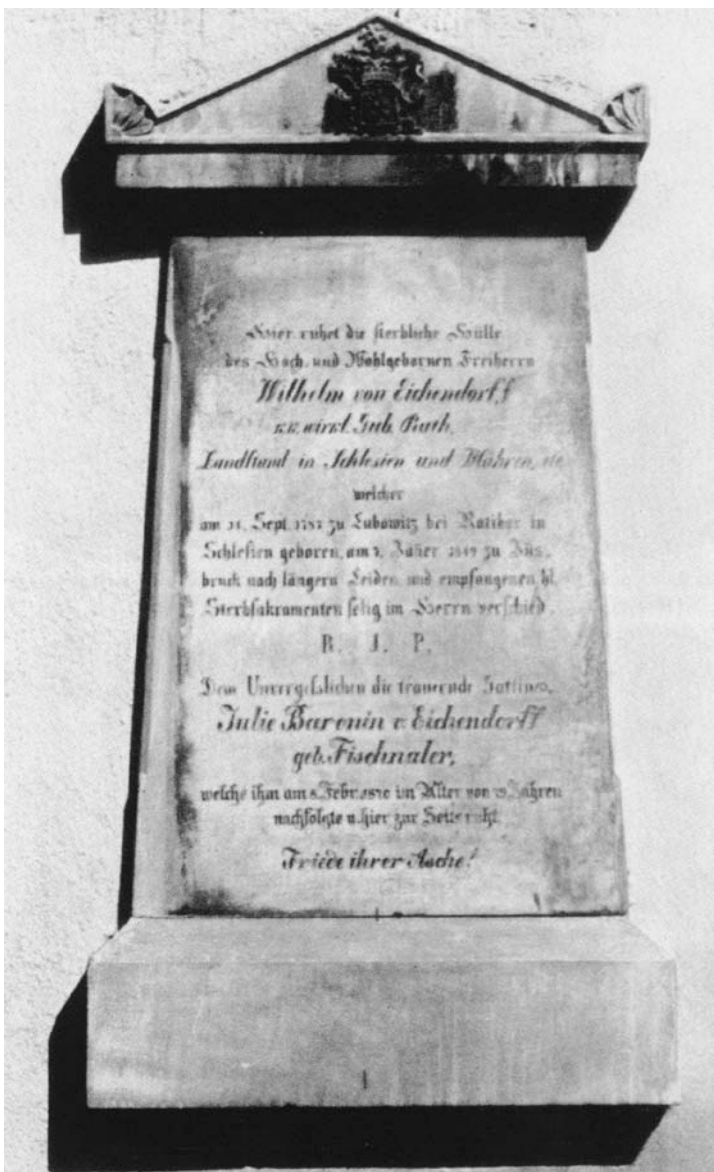 Hier ruhet die sterbliche Hülle
des Hoch und Wohlgebornen Freiherrn
Wilhelm von Eichendorff,
k.k. wirkl. Gub. Rath,
Landstand in Schlesien und Mähren, etc
welcher
am Sept. zu Lubowitz bei Ratibor in
Schlesien geboren, am 7. Jäner 1849 zu Iñs,
bruck nach längern Leiden und empfangenen hl.
Sterbsakramenten selig im Herrn verschied.
R. I. P.
Dem Unvergeßlichen die trauernde Gattinn,
Julie Baronin v. Eichendorff
geb. Fischnaler,
welche ihm am Febr. im Alter von Jahren
nachfolgte u. hier zur Seite ruht.
Friede ihrer Asche!